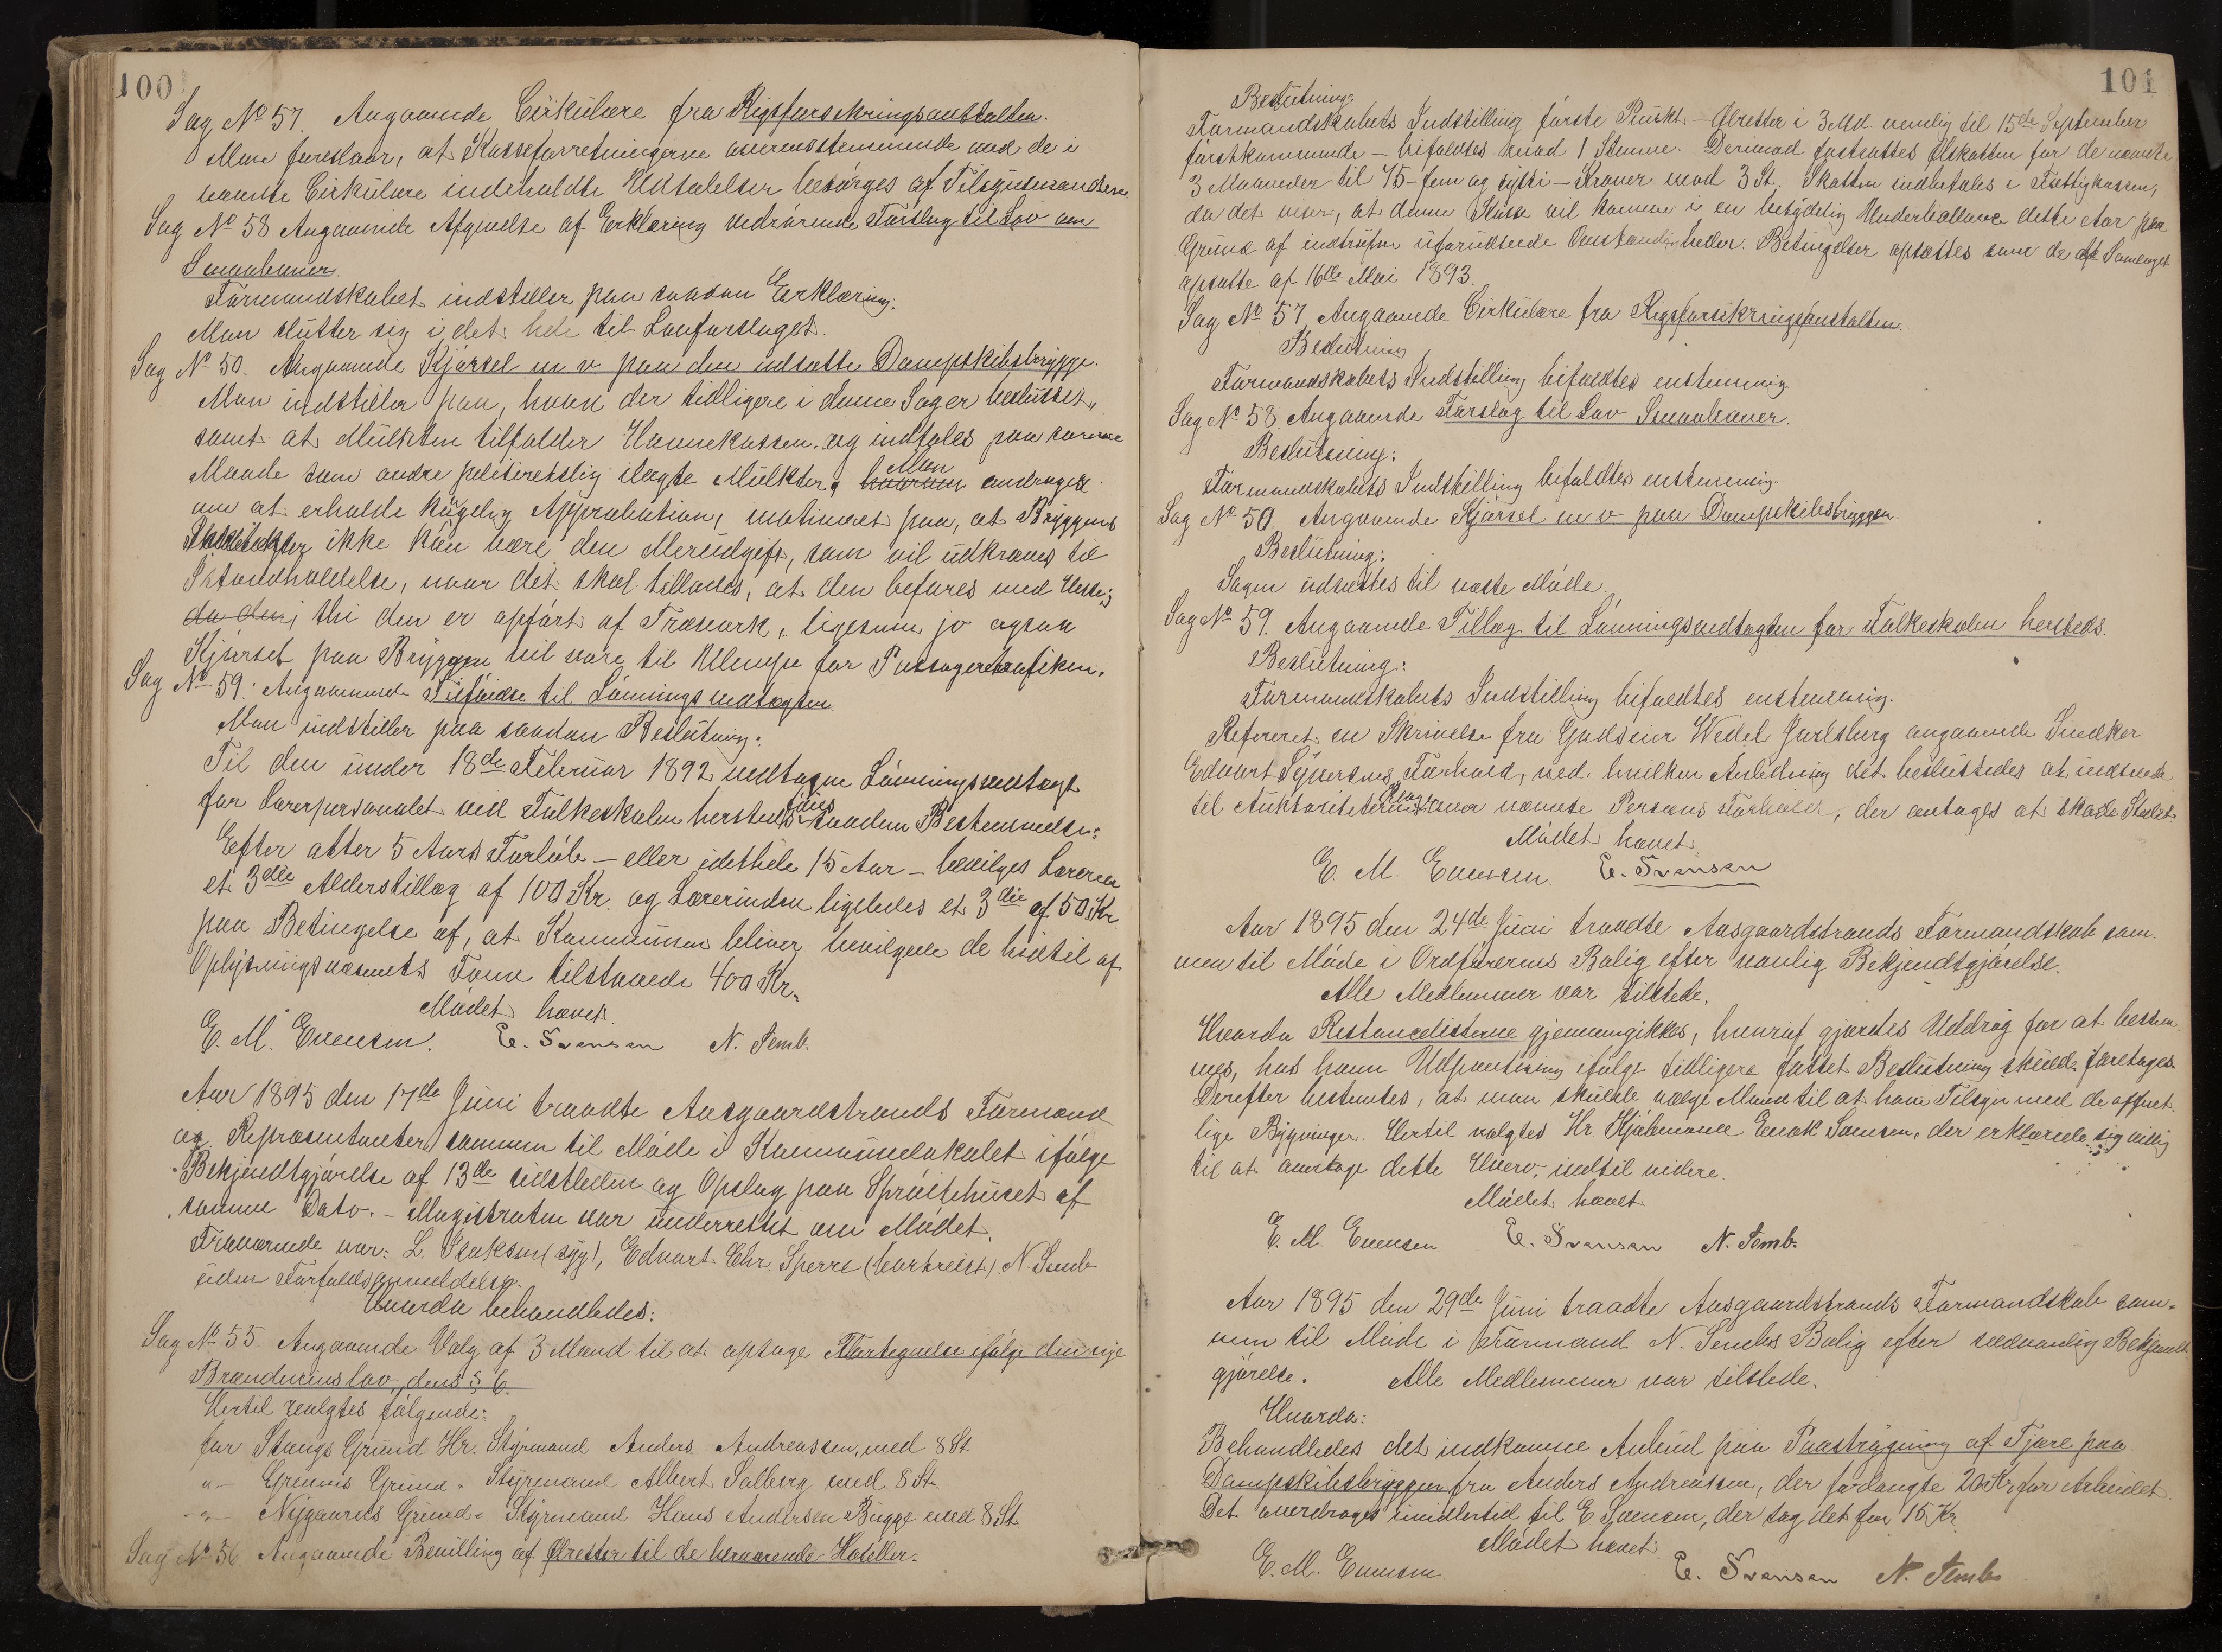 100
Sag No 57. Angaaende Cirkulære fra Rigsforsikringsanstalten.
Man foreslaar, at Kasseforretningerne overensstemmende med de i
nævnte Cirkulære indeholdte Udtalelser besørges af Tilsynsmanden.
Sag No 58 Angaaende Afgivelse af Erklæring vedrørende Forslag til Lov om
Smaabaner.
Formandskabet indstiller paa saadan Erklæring:
Man slutter sig i det hele til Lovforslaget.
Sag No 50. Angaaende Kjørsel m v paa den udsatte Dampskibsbrygge.
Man indstiller paa, hvad der tidligere i denne Sag er besluttet,
samt at Mulkten tilfalder Havnekassen og indtales paa samme
Maade som andre politiretslig ilagte Mulkter, Man andrager
om at erholde kgelig Approbation, motiveret paa, at Bryggens
Indtægter ikke kan bære den Merudgift, som vil udkræves til
Istandholdelse, naar det skal tillades, at den befares med Heste;
da den; thi den er opført af Træverk, ligesom jo ogsaa
Kjørsel paa Bryggen vil være til Ulempe for Passagertrafiken.
Sag No 59. Angaaende Tilføielse til Lønningsvedtægten.
Man indstiller paa saadan Beslutning:
Til den under 18de Februar 1892 vedtagne Lønningsvedtægt
for Lærerpersonalet ved Folkeskolen hersteds føies saadan Bestemmelse:
Efter atter 5 Aars Forløb – eller idethele 15 Aar – bevilges Læreren
et 3die Alderstillæg af 100 Kr. og Lærerinden ligeledes et 3die af 50 Kr.
paa Betingelse af, at Kommunen bliver bevilgede de hidtil af
Oplysningsvæsenets Fond tilstaaede 400 Kr.
Mødet hævet.
E. M. Evensen. E. Svensen N. Semb.
Aar 1895 den 17de Juni traadte Aasgaardstrands Formænd
og Repræsentanter sammen til Møde i Kommunelokalet ifølge
Bekjendtgjørelse af 13de sidstleden og Opslag paa Sprøitehuset af
samme Dato. – Magistraten var underrettet om Mødet.
Fraværende var: L. Isaksen (syg), Edvart Chr. Sperre (bortreist) N. Semb
uden Forfaldsanmeldelse.
Hvorda behandledes:
Sag No 55. Angaaende Valg af 3 Mænd til at optage Fortegnelse ifølge den nye
Brandvæns lov, dens § 6.
Hertil valgtes følgende:
for Stangs Grund Hr. Styrmand Anders Andreassen, med 8 St
"– Grenns Grund " Styrmand Albert Solberg med 8 St.
–"– Nygaards Grund " Styrmand Hans Andersen Bugge med 8 St
Sag No 56. Angaaende Bevilling af Ølretter til de herværende Hoteller.
101
Beslutning:
Formandskabets Indstilling første Punkt – Ølretter i 3 Md. nemlig til 15de September
førstkommende – bifaldtes mod 1 Stemme. Derimod fastsattes Ølskatten for de nævnte
3 Maaneder til 75 – fem og sytti – Kroner mod 3 St. Skatten indbetales i Fattigkassen,
da det viser, at denne Kasse vil komme i en betydelig Underballance dette Aar paa
Grund af indtrufne uforudseede Omstændigheder. Betingelser opsættes som de af Samlaget
opsatte af 16de Mai 1893.
Sag No 57 Angaaende Cirkulære fra Rigsforsikringsanstalten.
Beslutning
Formandskabets Indstilling bifaldtes enstemmig
Sag No 58. Angaaende Forslag til Lov Smaabaner.
Beslutning:
Formandskabets Indstilling bifaldtes enstemmig.
Sag No 50. Angaaende Kjørsel m v paa Dampskibsbryggen.
Beslutning:
Sagen udsættes til næste Møde.
Sag No 59. Angaaende Tillæg til Lønningsvedtægten for Folkeskolen hersteds.
Beslutning:
Formandskabets Indstilling bifaldtes enstemmig.
Refereret en Skrivelse fra Godseier Wedel Jarlsberg angaaende Snedker
Edvart Syversens Forhold, ved hvilken Anledning det besluttedes at indsende
til Auktoriteterne Klage over nævnte Persons Forhold, der antages at skade Stedet.
Mødet hævet
E. M. Evensen. E. Svensen
Aar 1895 den 24de Juni traadte Aasgaardstrands Formandskab sam
men til Møde i Ordførerens Bolig efter vanlig Bekjendtgjørelse.
Alle Medlemmer var tilstede.
Hvorda Restancelisterne gjennemgikkes, hvoraf gjordes Uddrag for at bestem
mes, hos hvem Udpantning ifølge tidligere fattet Beslutning skulde foretages.
Derefter bestemtes, at man skulde vælge Mænd til at have Tilsyn med de offent
lige Bygninger. Hertil valgtes Hr. Høibemand Enok Svensen, der erklærede sig villig
til at overtage dette Hverv, indtil videre.
Mødet hævet
E. M. Evensen E. Svensen N. Semb.
Aar 1895 den 29de Juni traadte Aasgaardstrands Formandskab sam-
men til Møde i Formand N. Sembs Bolig efter sædvanlig Bekjendt
gjørelse. Alle Medlemmer var tilstede.
Hvorda:
Behandledes det indkomne Anbud paa Paastrygning af Tjære paa
Dampskibsbryggen fra Anders Andreassen, der forlangte 20 Kr. for Arbeidet.
Det overdroges imidlertid til E. Svensen, der tog det for 15 Kr.
Mødet hævet
E. M. Evensen E. Svensen N. Semb